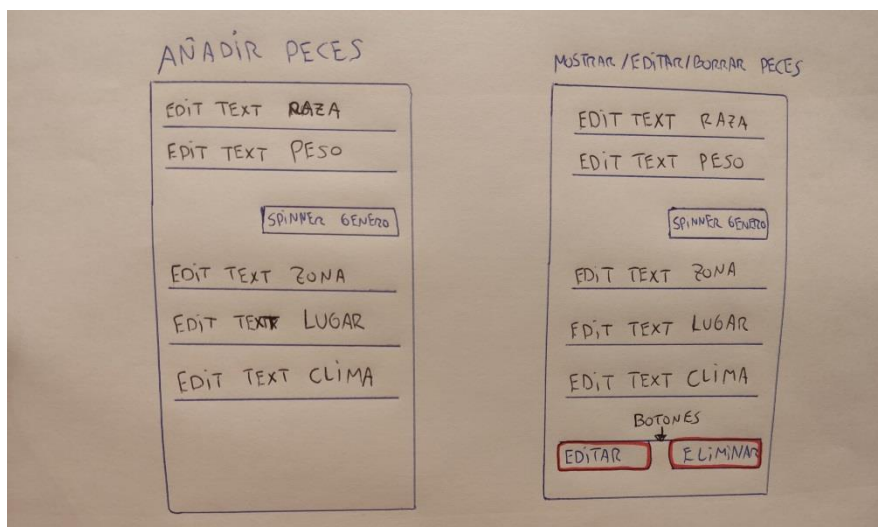 AÑADIR PECES
EDIT TEXT RAZA
EDIT TEXT PESO
SPINNER GENERO
EDIT TEXT ZONA
EDIT TEXT LUGAR
EDIT TEXT CLIMA
MOSTRAR/EDITAR/BORRAR PECES
EDIT TEXT RAZA
EDIT TEXT PESO
SPINNER GENERO
EDIT TEXT ZONA
EDIT TEXT LUGAR
EDIT TEXT CLIMA
BOTONES
EDITAR ELIMINAR